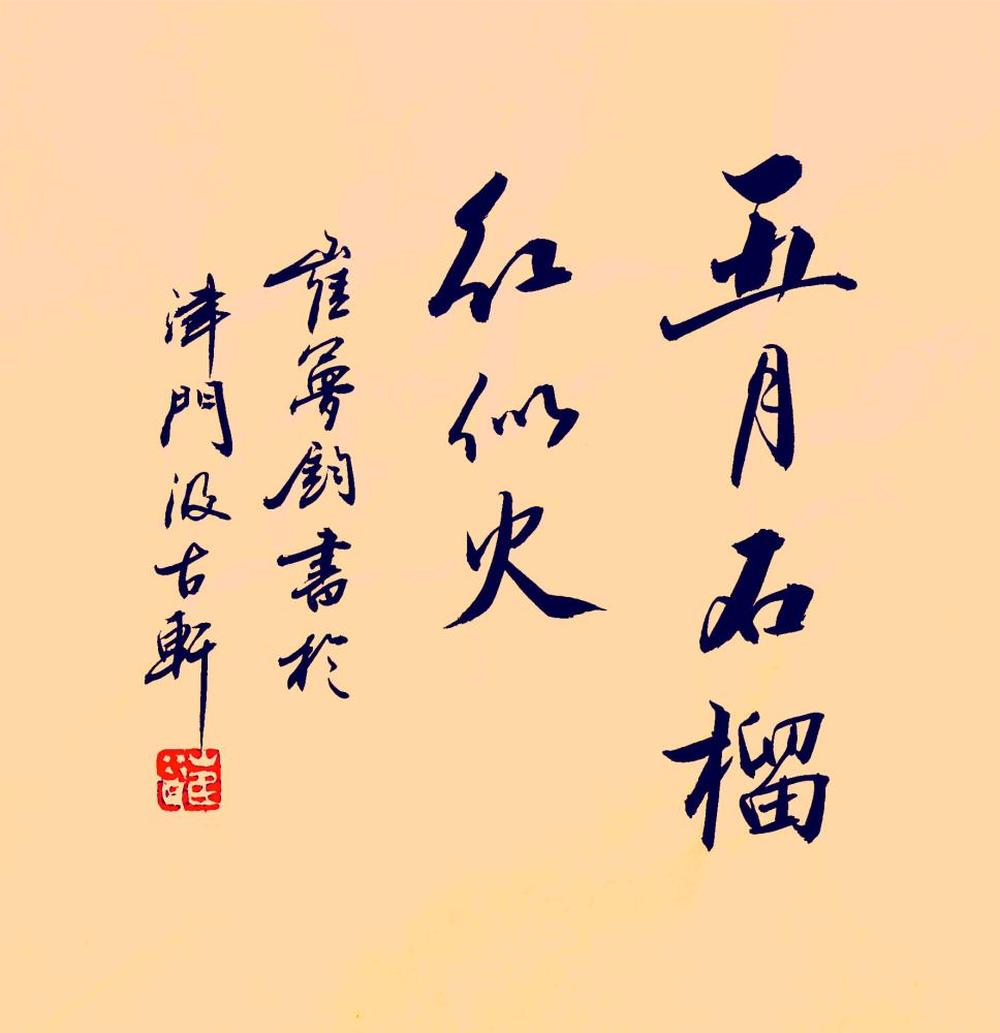 五月石榴
红似火
崔夢鈞書於
津門汲古軒